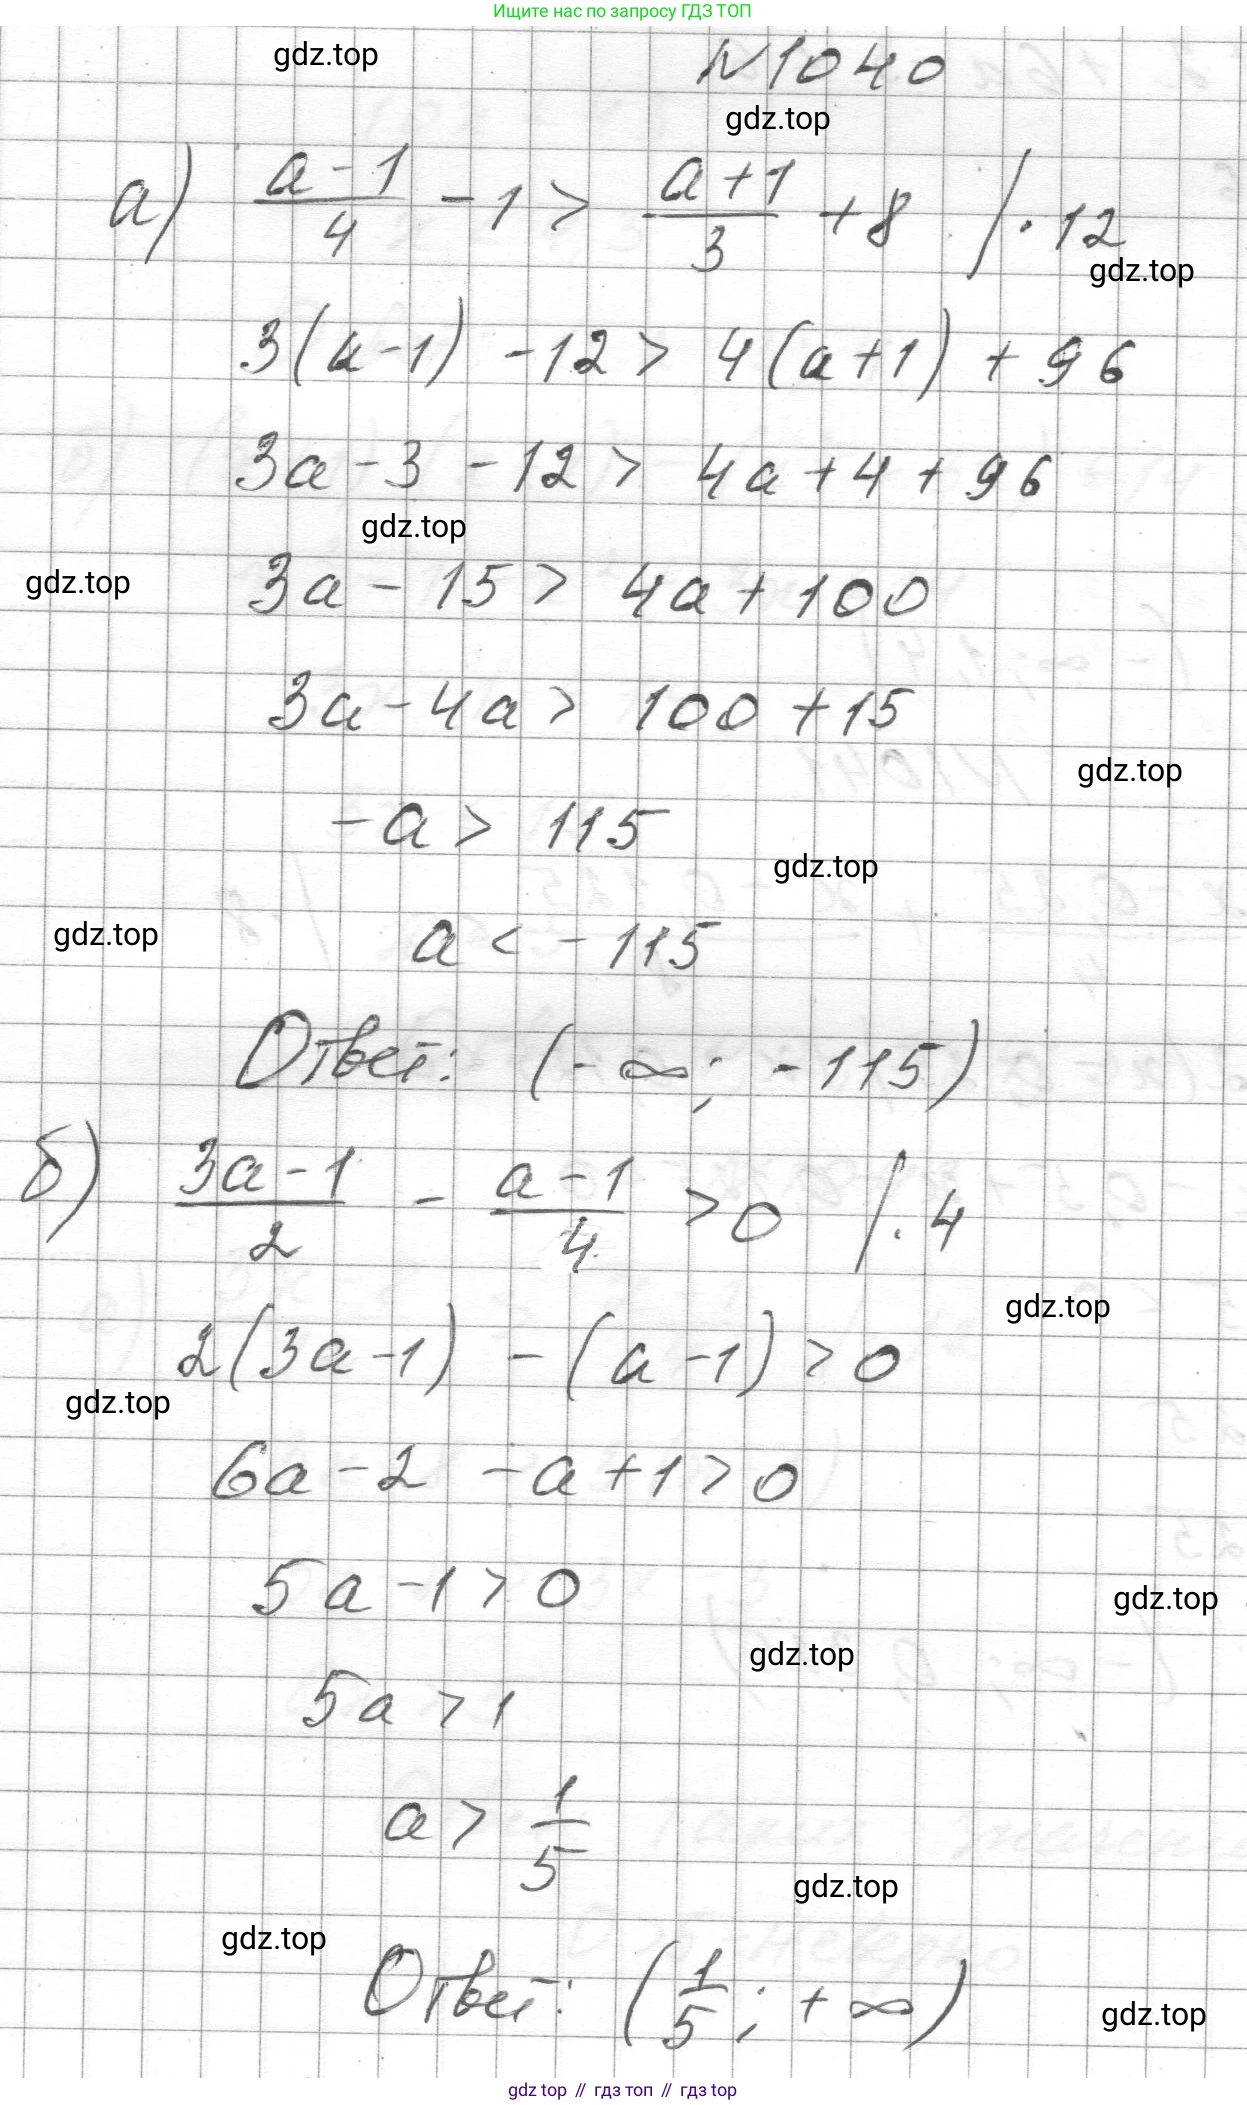 Ищите нас по запросу ГДЗ ТОП
gdz.top
N1040
gdz.top
а) (a-1)/4 - 1 > (a+1)/3 + 8 / · 12
gdz.top
3(a-1) - 12 > 4(a+1) + 96
3a - 3 - 12 > 4a + 4 + 96
gdz.top
gdz.top
3a - 15 > 4a + 100
3a - 4a > 100 + 15
gdz.top
-a > 115
gdz.top
gdz.top
a < -115
Ответ: (-∞; -115)
б) (3a-1)/2 - (a-1)/4 > 0 / · 4
gdz.top
2(3a-1) - (a-1) > 0
gdz.top
6a - 2 - a + 1 > 0
5a - 1 > 0
gdz.top
gdz.top
5a > 1
a > 1/5
gdz.top
gdz.top
Ответ: (1/5; +∞)
gdz.top
gdz top // гдз топ // gdz top